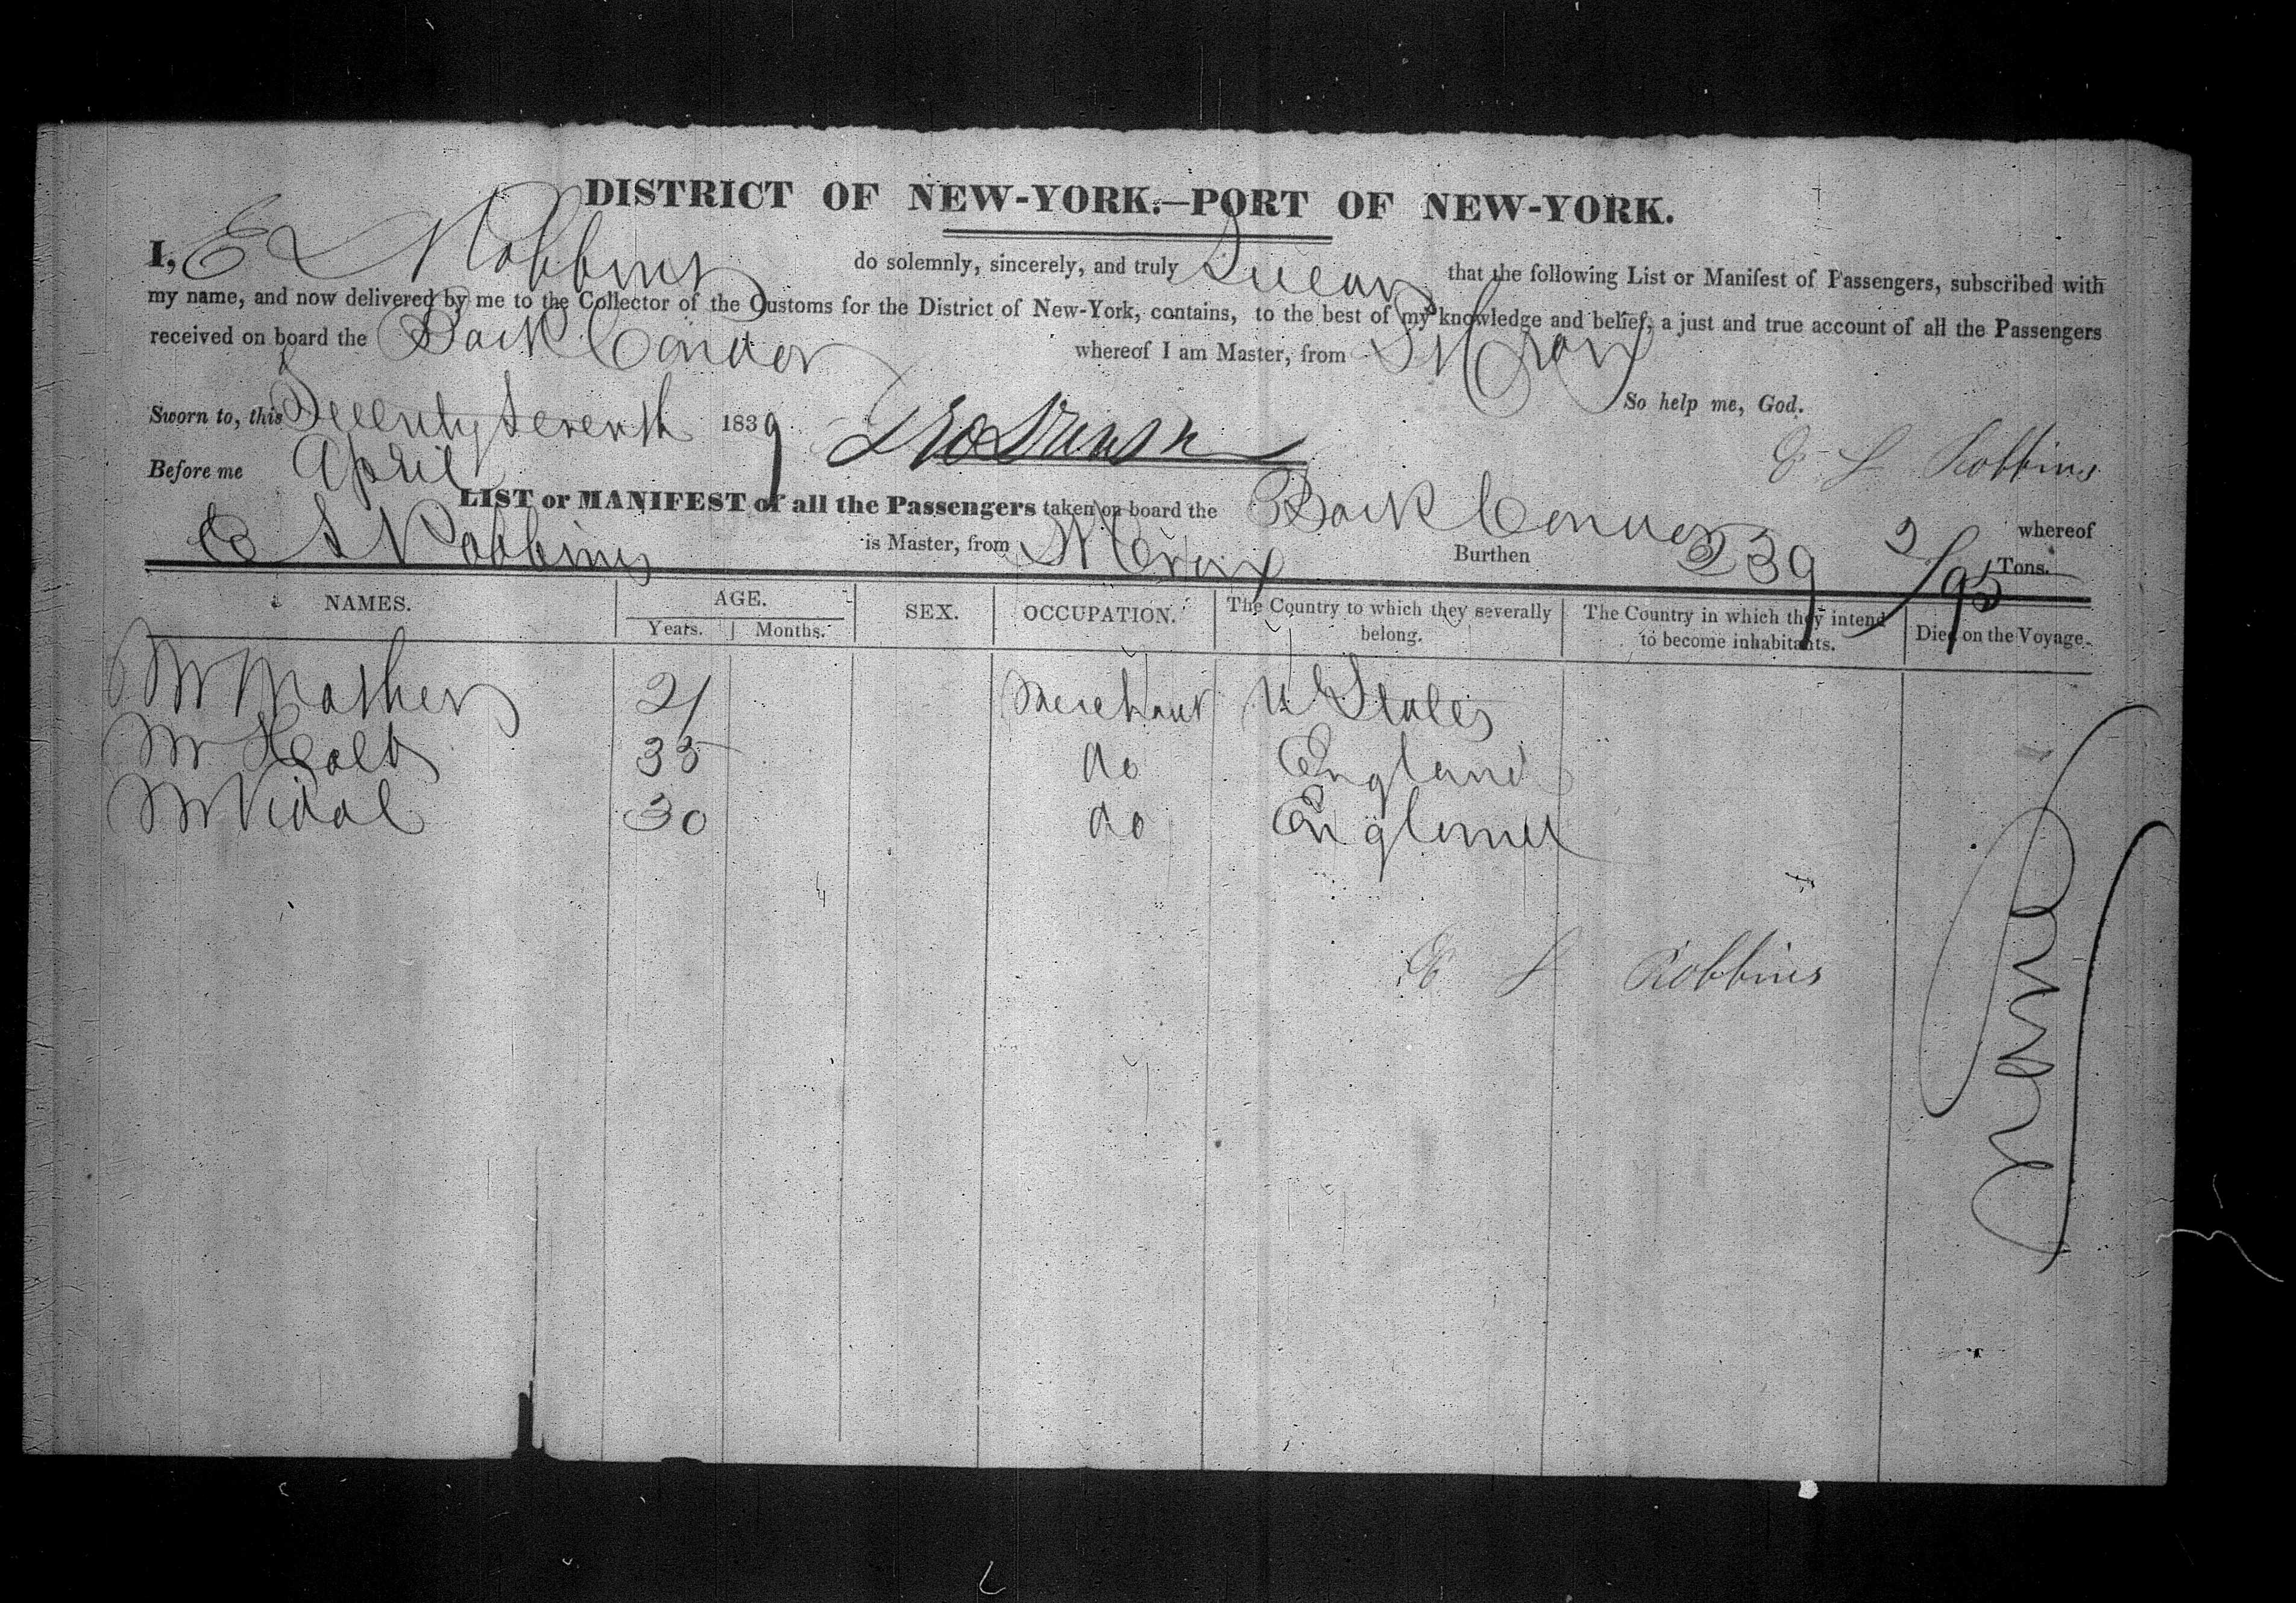 DISTRICT OF NEW-YORK.—PORT OF NEW-YORK.
I, E L Robbins do solemnly, sincerely, and truly Swear that the following List or Manifest of Passengers, subscribed with
my name, and now delivered by me to the Collector of the Customs for the District of New-York, contains, to the best of my knowledge and belief, a just and true account of all the Passengers
received on board the Bark Condor whereof I am Master, from St Croix
So help me, God.
Sworn to, this Twenty Seventh 1839
April
Before me
E L Robbins
LIST or MANIFEST of all the Passengers taken on board the Bark Condor whereof
E L Robbins is Master, from St Croix Burthen 239 2/95 Tons.
NAMES. AGE. SEX. OCCUPATION. The Country to which they severally belong. The Country in which they intend to become inhabitants. Died on the Voyage.
Years. Months.
Mr Mather 21 Merchant U States
Mr 35 do England
Mr Vidal 30 do England
E L Robbins
None